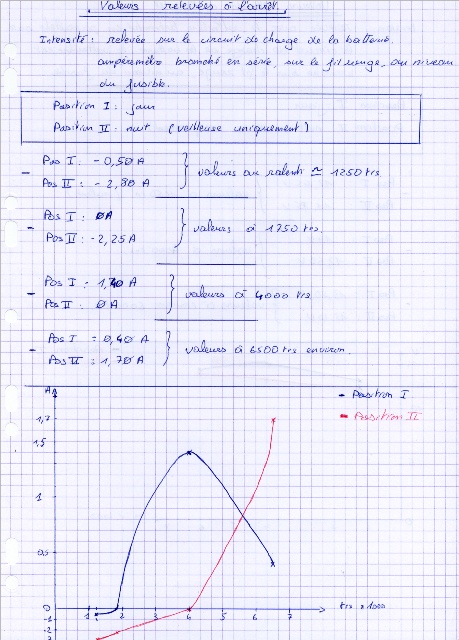 Valeurs relevées à l'arrêt.
Intensité : relevée sur le circuit de charge de la batterie.
ampèremètre branché en série, sur le fil rouge, au niveau
du fusible.
Position I : jour
Position II : nuit (veilleuse uniquement)
Pos I : - 0,50 A
Pos II : - 2,80 A
valeurs au ralenti ≃ 1250 trs
Pos I : 0A
Pos II : -2,25 A
valeurs à 1750 trs.
Pos I : 1,40 A
Pos II : 0A
valeurs à 4000 trs
Pos I : 0,40 A
Pos II : 1,70 A
valeurs à 6500 trs environ.
A
- Position I
- Position II
1,7
1,5
1
0,5
0
-1
-2
-3
1 2 3 4 5 6 7
trs x 1000